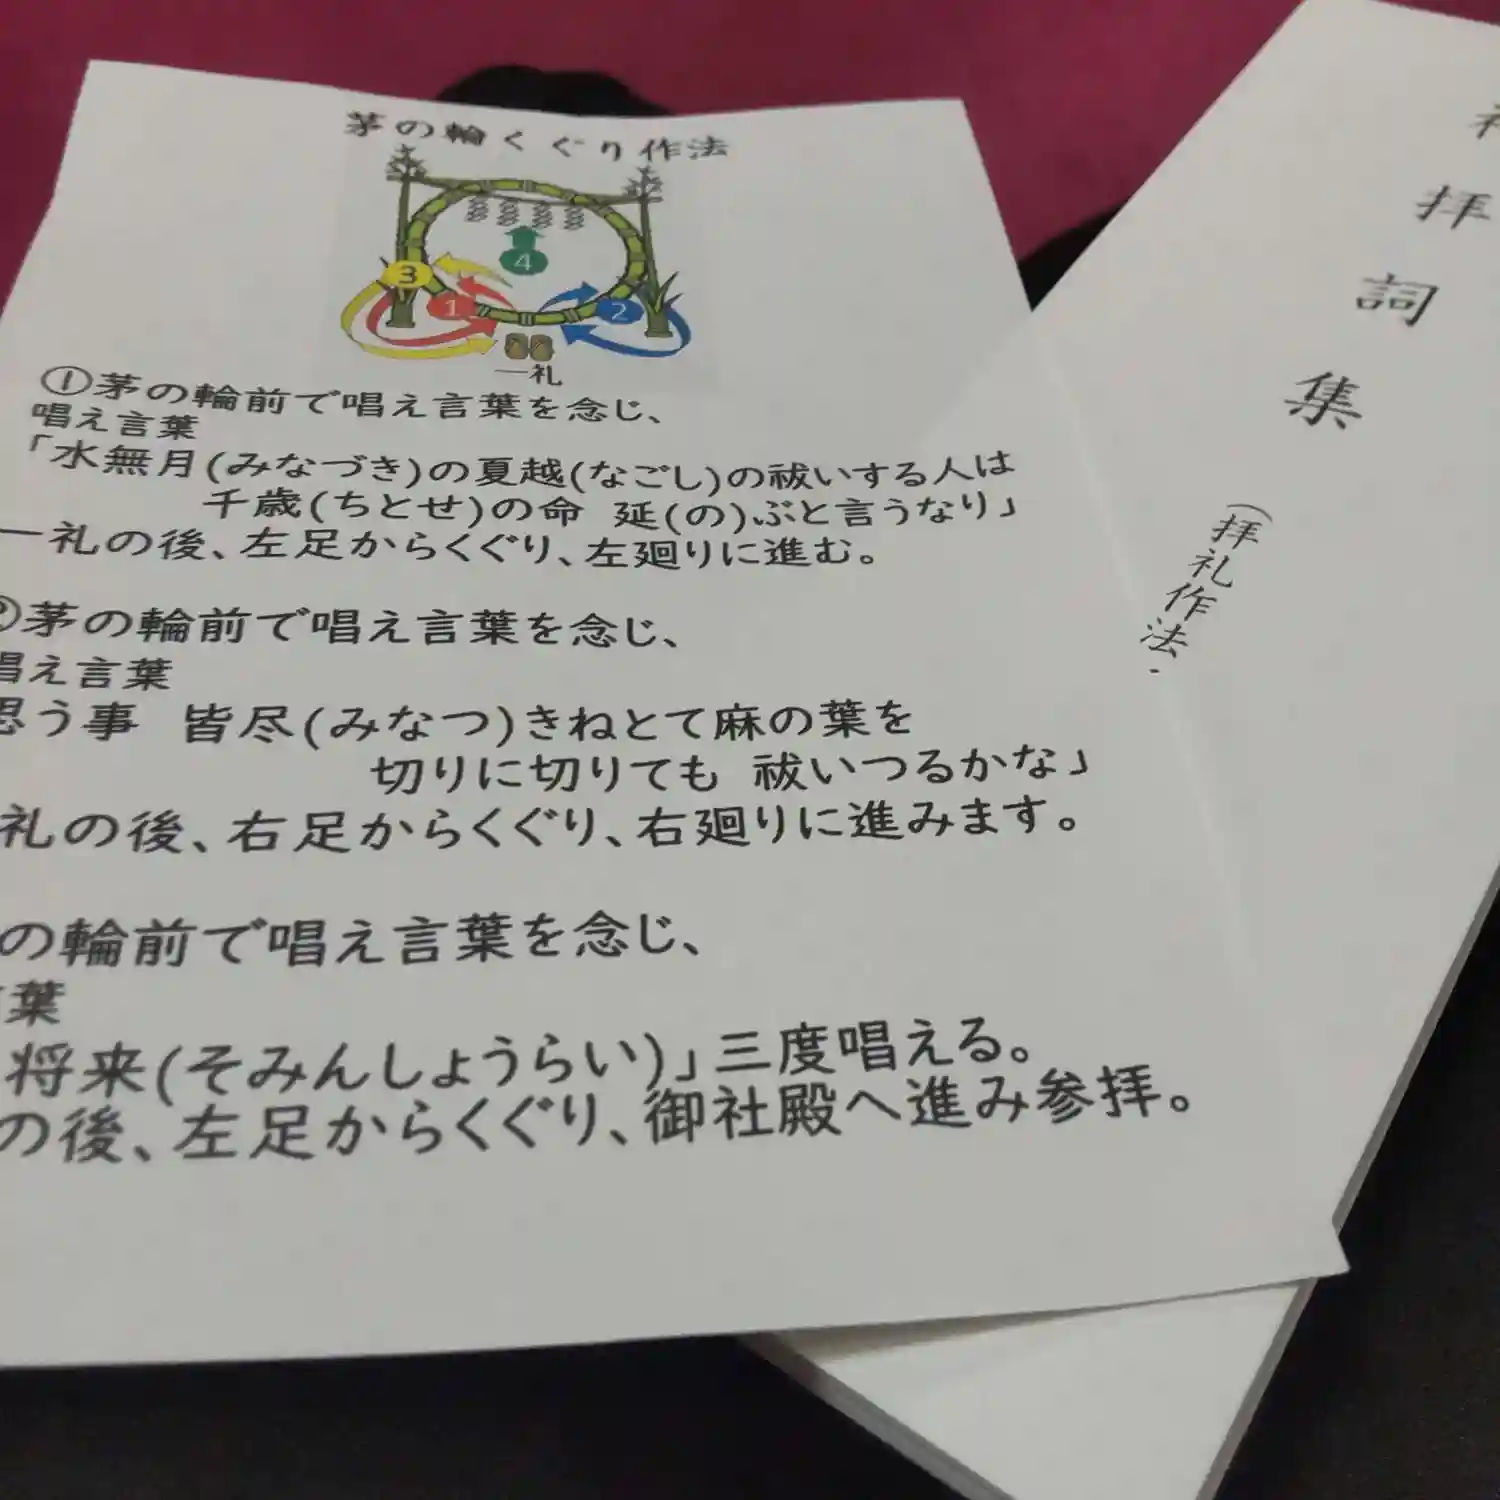 茅の輪くぐり作法
3
4
1
2
一礼
①茅の輪前で唱え言葉を念じ、
唱え言葉
「水無月(みなづき)の夏越(なごし)の祓いする人は
千歳(ちとせ)の命 延(の)ぶと言うなり」
一礼の後、左足からくぐり、左廻りに進む。
②茅の輪前で唱え言葉を念じ、
唱え言葉
思う事 皆尽(みなつ)きねとて麻の葉を
切りに切りても 祓いつるかな」
礼の後、右足からくぐり、右廻りに進みます。
の輪前で唱え言葉を念じ、
葉
将来(そみんしょうらい)」三度唱える。
の後、左足からくぐり、御社殿へ進み参拝。
拝詞集
(拝礼作法・